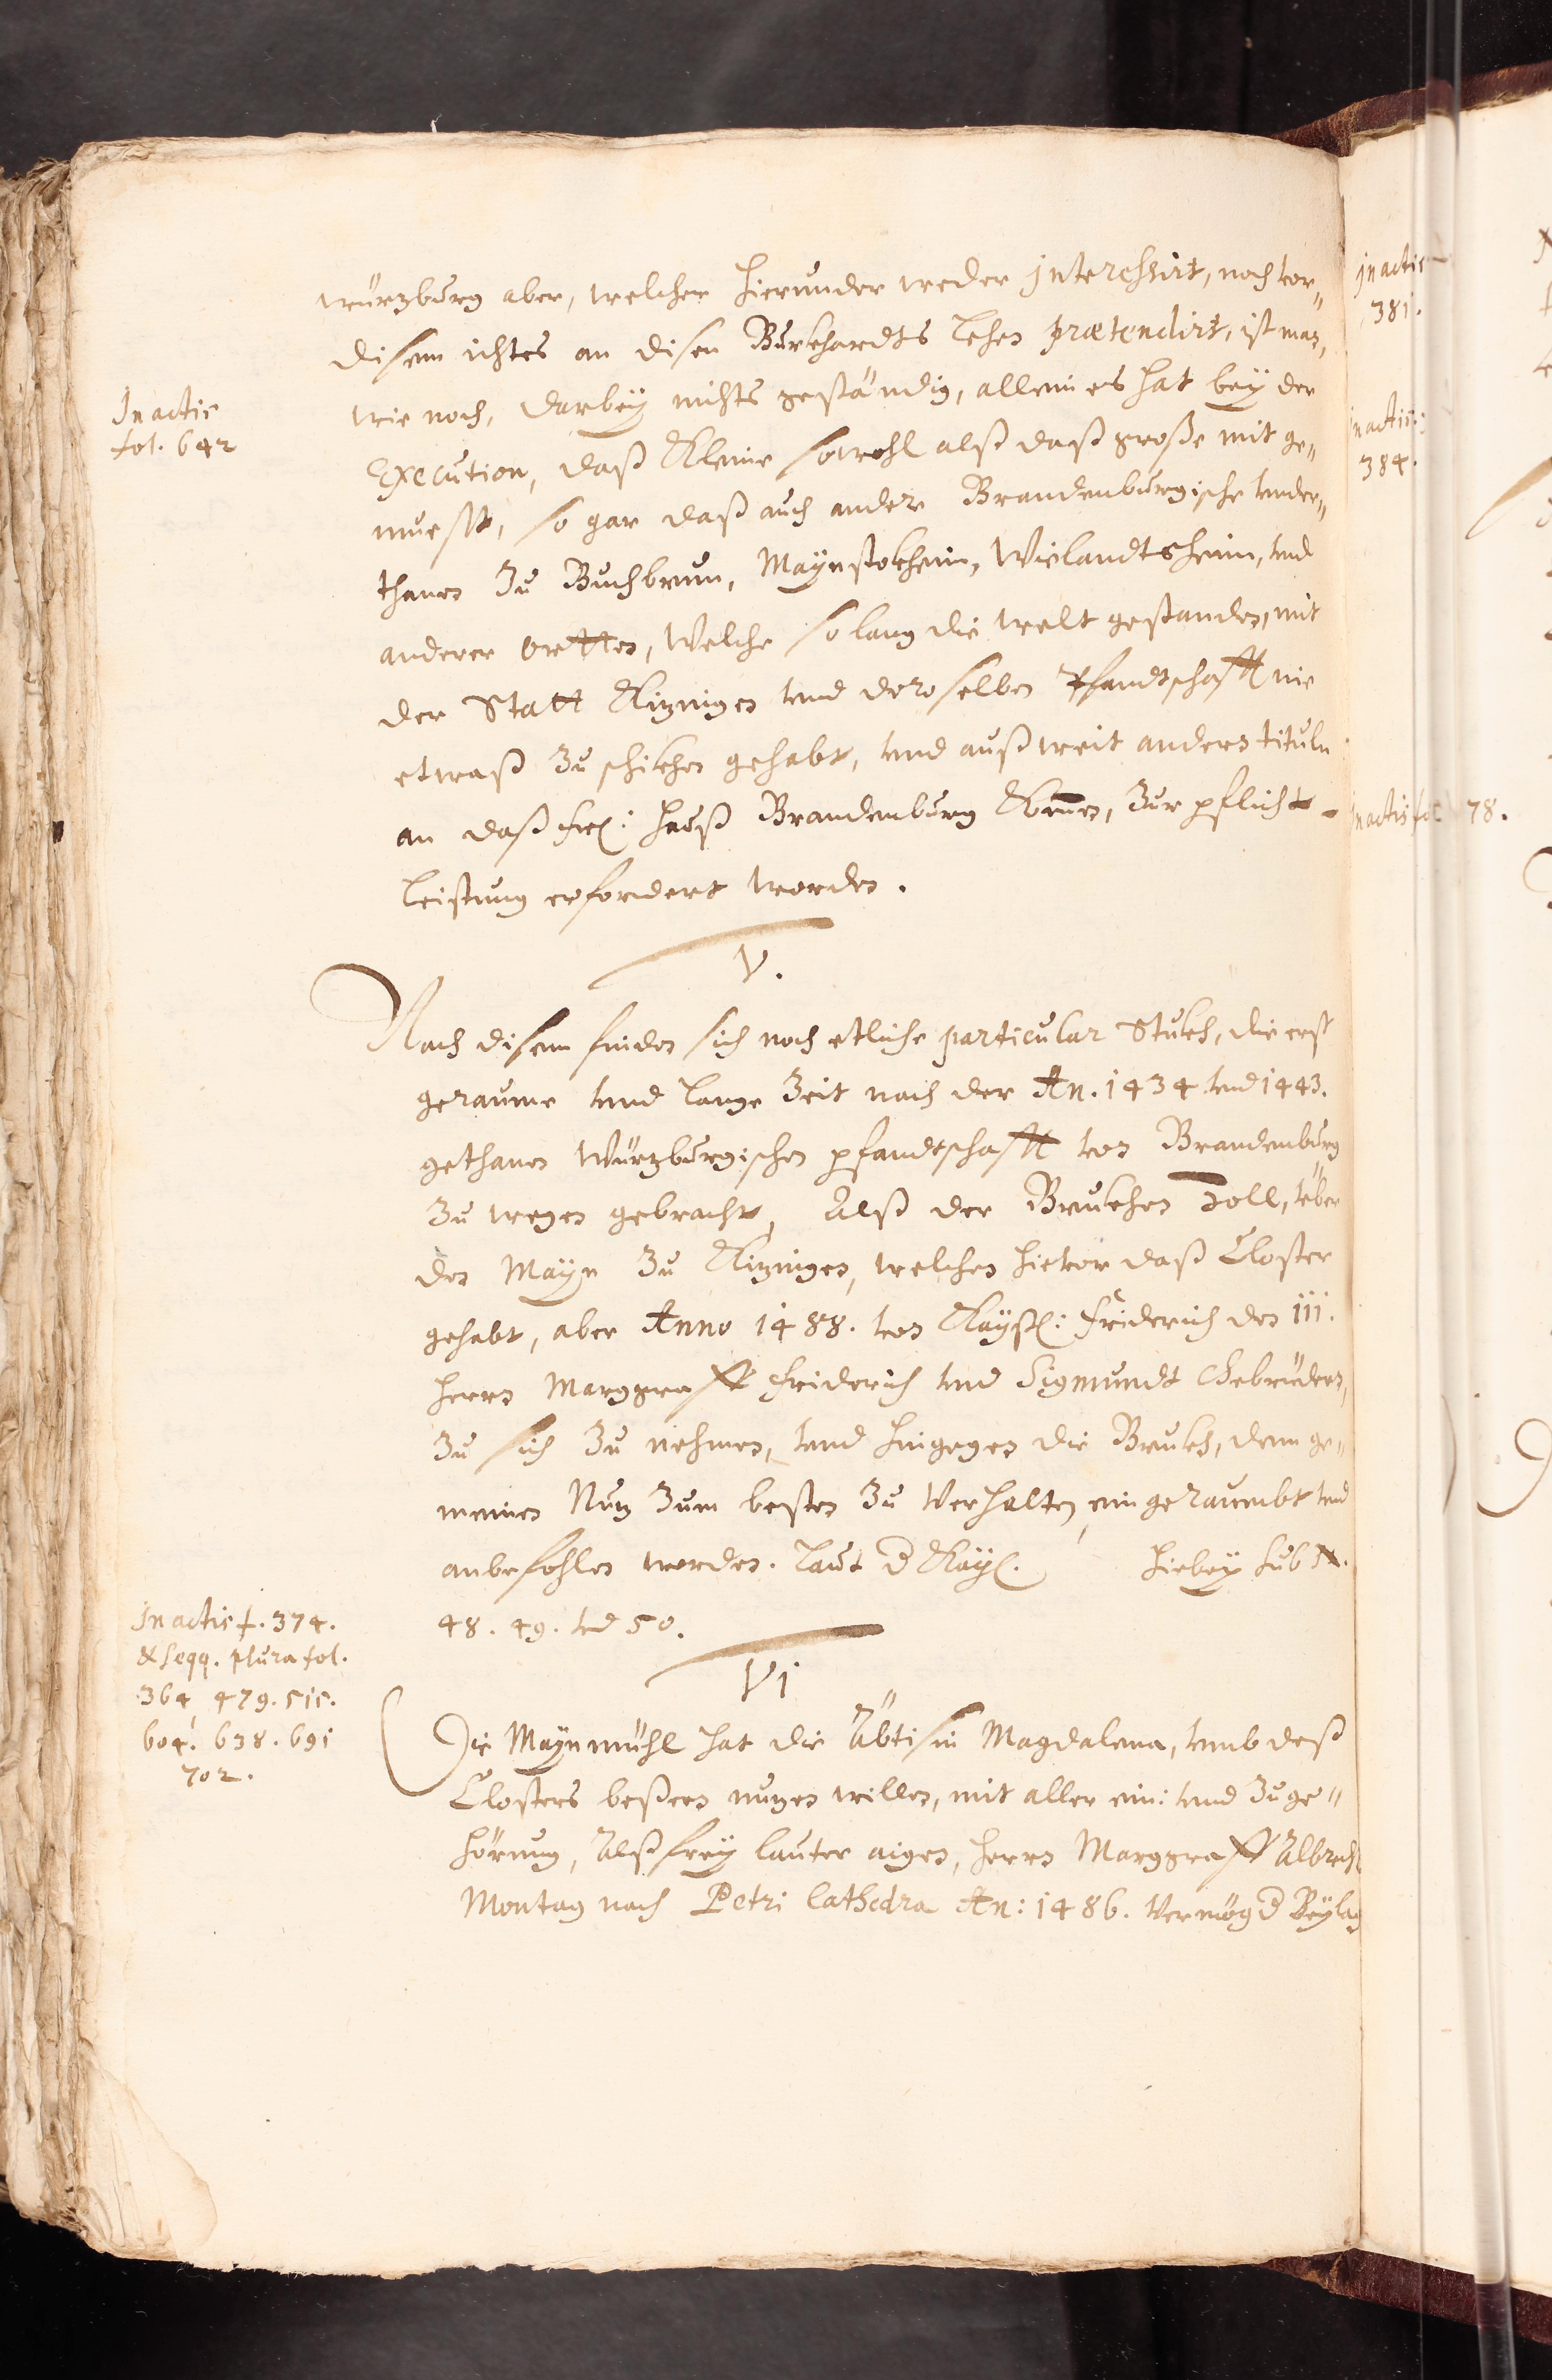 würzburg aber, welcher hierunder weder jnteressirt, noch vor„
disem ichtes an disen Burkhardts lehen prætendirt, ist man,
wie noch, darbeÿ nichts geständig, allein es hat beÿ der
Execution, daß Kleine sowohl alß daß große mit ge„
muest, so gar daß auch andere Brandenburgische vnder„
thanen Zu Buchbrun, Maÿnstokheim, Wielandtsheim, vnd
anderer ortten, Welche so lang die welt gestanden, mit
der Statt Kitzingen vnnd deroselben Pfandtschafft nie
etwaß Zu schikhen gehabt, vnnd auß weit anders tituln
an daß frl: hauß Brandenburg Komen, Zur pflicht-
leistung erfordert worden.
In actis
fol. 642
V.
Nach disem finden sich noch etliche particular Stukh, die erst
geraume vnnd lange Zeit nach der An. 1434 vnd 1443.
gethanen Würtzburgischen pfandtschafft von Brandenburg
Zu wegen gebracht, Alß der Brukhen Zoll, über
den Maÿn Zu Kitzingen, welchen hievor daß Closter
gehabt, aber Anno 1488. von Kaÿsl: Friderich den iii.
herrn Marggraff Friderich vnd Sigmundt Gebrüdern,
Zu sich Zu nehmen, vnnd hingegen die Brukh, dem ge„
meinen Nutz Zum besten Zu Verhalten, eingeraumbt vnd
anbefohlen worden. Laut d Kaÿl. hiebeÿ sub N.
48. 49. vnd 50.
VI
In actis f. 374.
& seqq. plura fol.
364, 479. 515.
604. 638. 691
702.
Die Maÿnmühl hat die Äbtisin Magdalena, vmb deß
Closters beßern nutzen willen, mit aller ein: vnnd Zuge„
hörung, Alß freÿ lauter aigen, herrn Marggraff Albrecht
Montag nach Petri Cathedra An: 1486. Vermög d Beÿlag
jn actis
381.
jn actis
384.
jn actis fol 78.